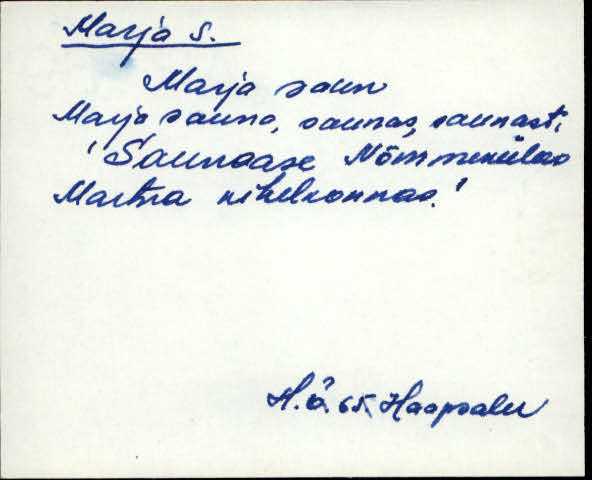 Marja S.
Marja saun
Marja sauna, saunas, saunast,
'Saunaase Nõmmekülas
Martna kihelkonnas.'
H. Ö. 65. Haapsalu